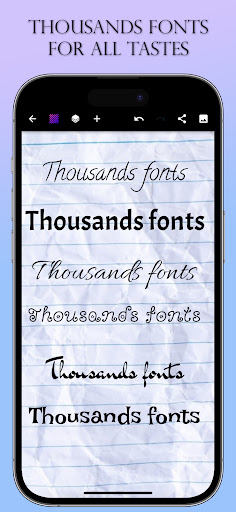 THOUSANDS FONTS
FOR ALL TASTES
Thousands fonts
Thousands fonts
Thousands fonts
Thousands fonts
Thousands fonts
Thousands fonts